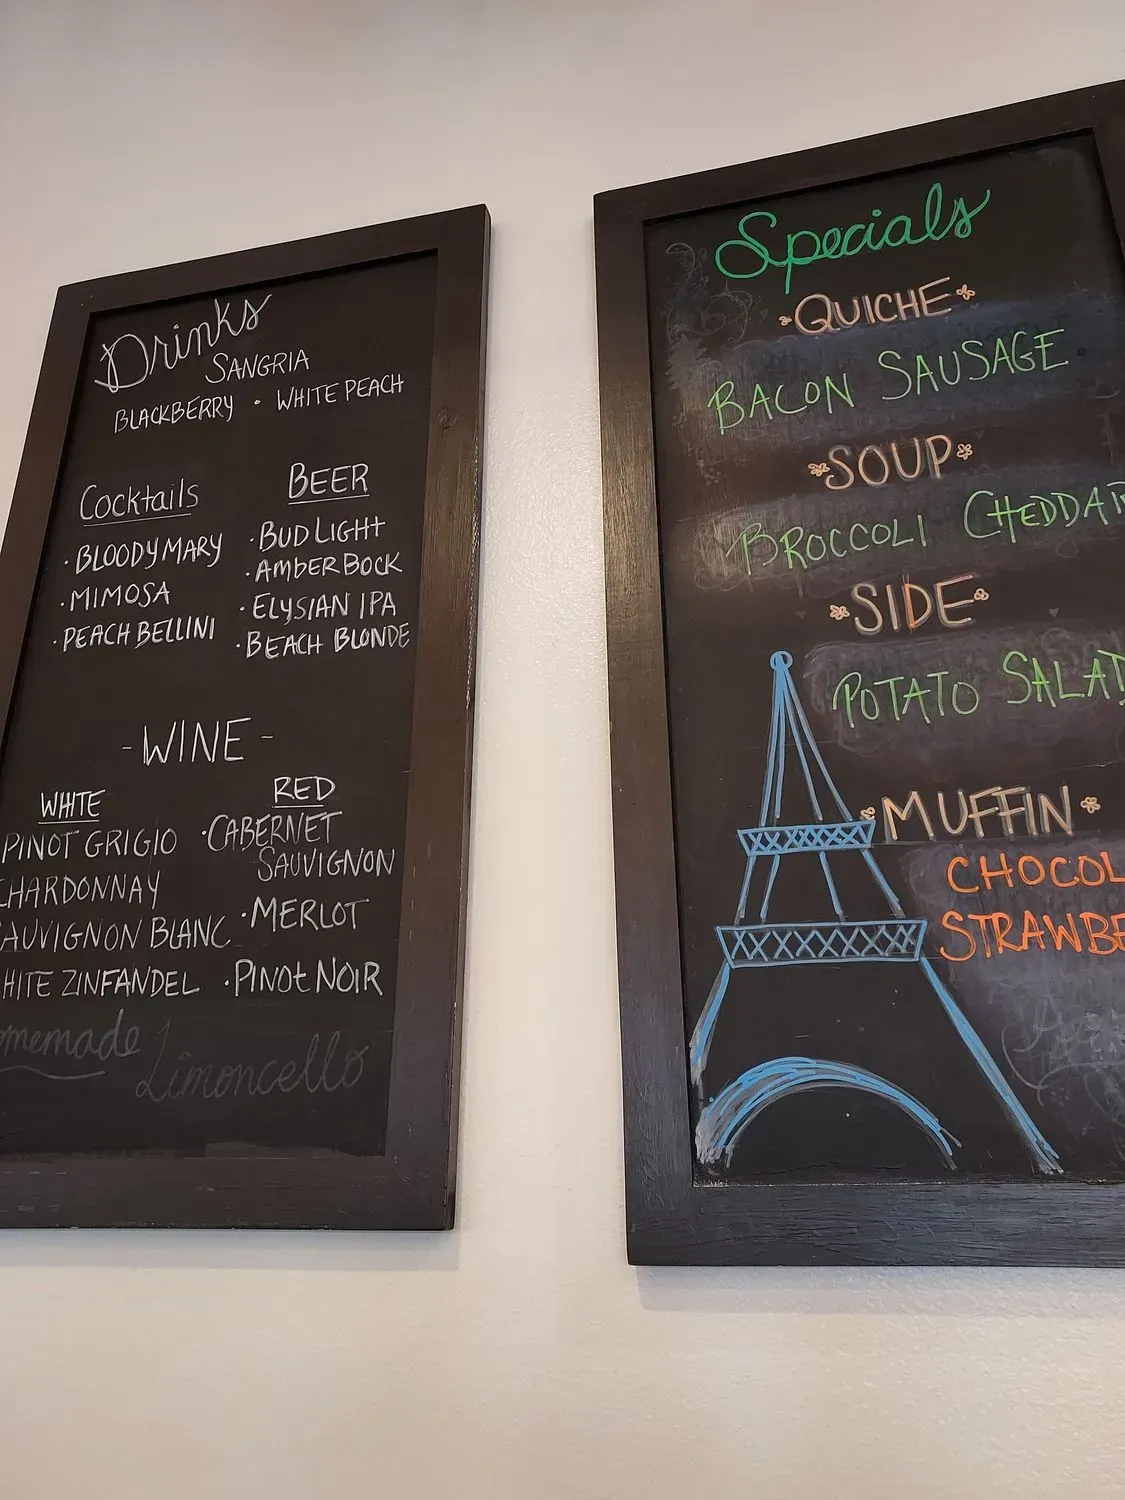 Drinks
SANGRIA
BLACKBERRY • WHITE PEACH
Cocktails
• BLOODY MARY
• MIMOSA
• PEACH BELLINI
BEER
• BUD LIGHT
• AMBER BOCK
• ELYSIAN IPA
• BEACH BLONDE
- WINE -
WHITE
PINOT GRIGIO
CHARDONNAY
SAUVIGNON BLANC
WHITE ZINFANDEL
RED
• CABERNET
SAUVIGNON
• MERLOT
• PINOT NOIR
Homemade
Limoncello
Specials
QUICHE
BACON SAUSAGE
SOUP
BROCCOLI CHEDDAR
SIDE
POTATO SALAD
MUFFIN
CHOCOL
STRAWBE